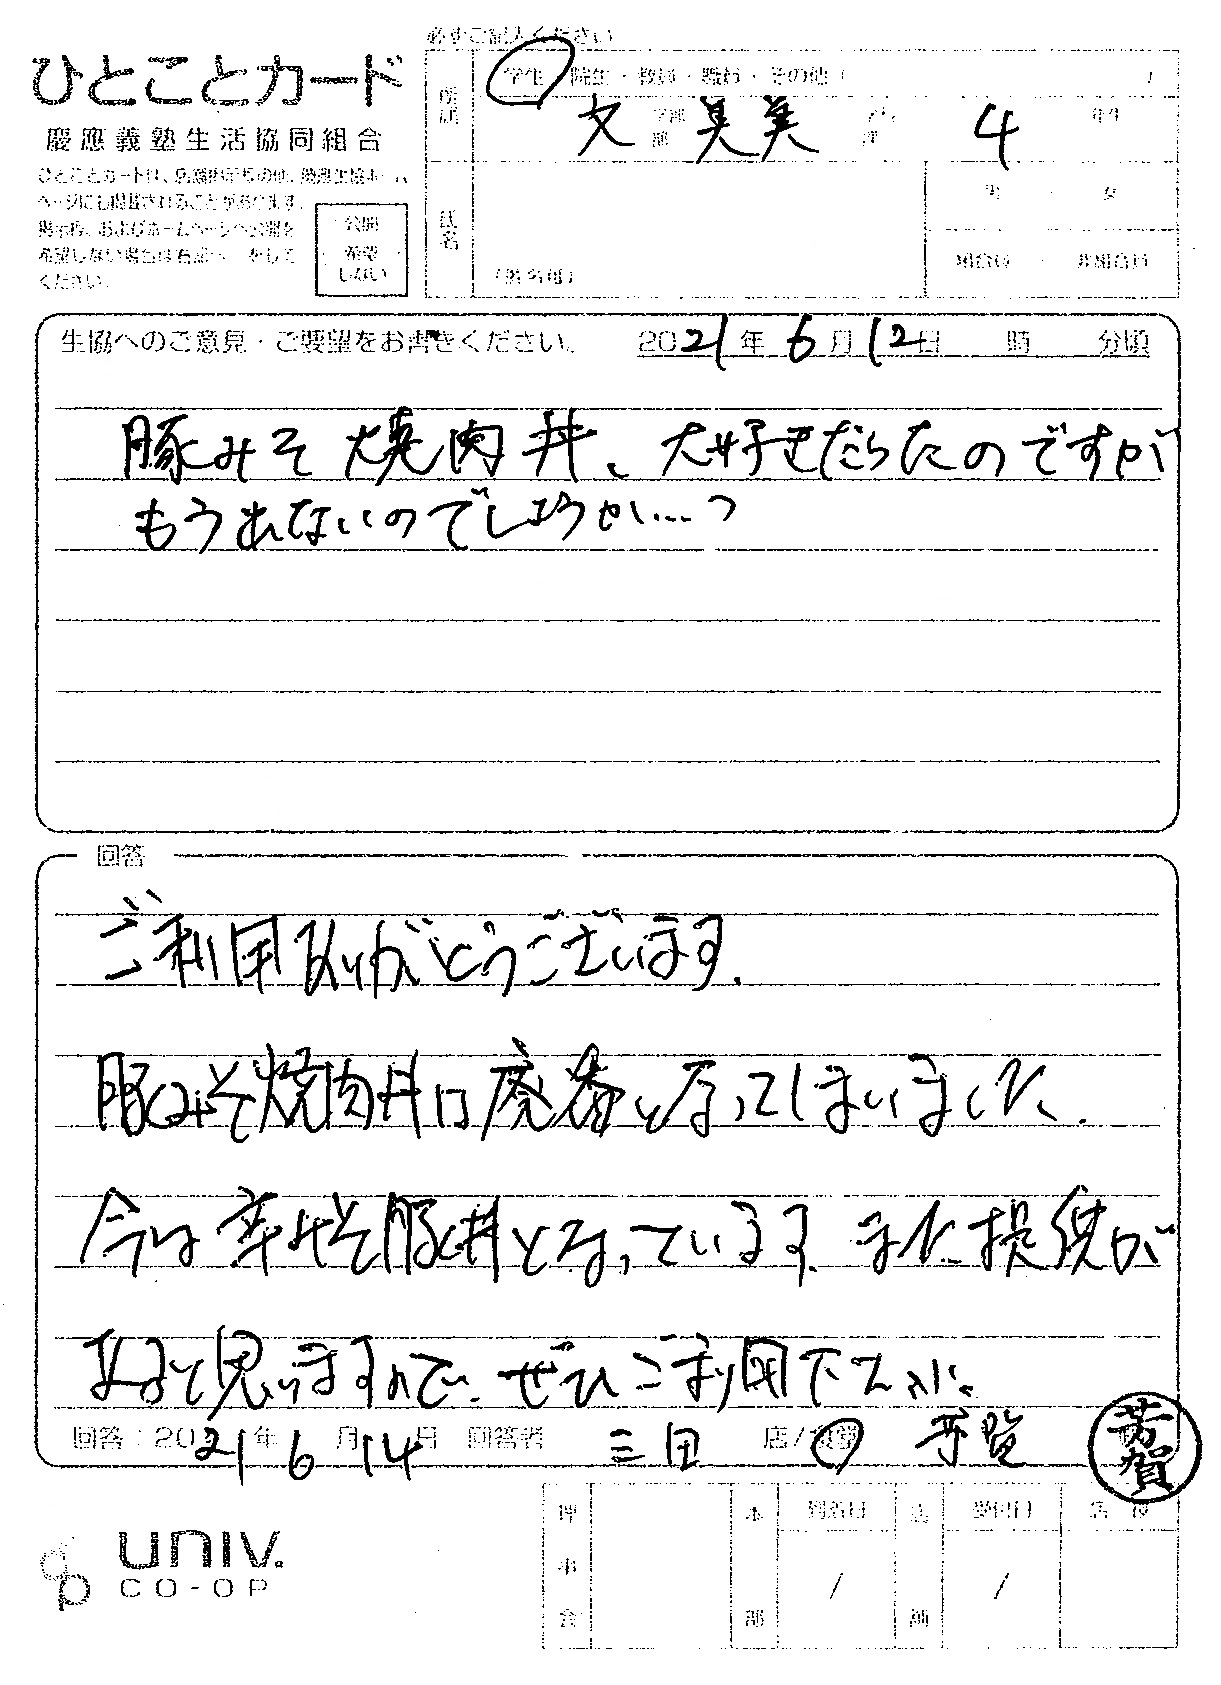 必ずご記入ください
ひとことカード
慶應義塾生活協同組合
ひとことカードは、
ページにも掲載されることがあります。
掲示板、およびホームページへの公開を
希望しない場合は右記へ をして
ください。
公開
希望
しない
所属
学生・院生・教員・職員・その他（ ）
文 学部 美美 4 年生
氏名
（署名可）
男・女
組合員・非組合員
生協へのご意見・ご要望をお書きください。 2021年 6月 12日 時 分頃
豚みそ焼肉丼、大好きだったのですが
もう出ないのでしょうか…?
回答
ご利用ありがとうございます。
豚みそ焼肉丼は廃番となってしまいました。
今は辛みそ豚丼となっています。また提供が
あると思いますので、ぜひご利用下さい。
回答：2021年 6月 14日 回答者 三田 店/食堂 芳賀
芳賀
univ.
CO-OP
理事会
本部
到着日
/
店舗
受付日
/
店長